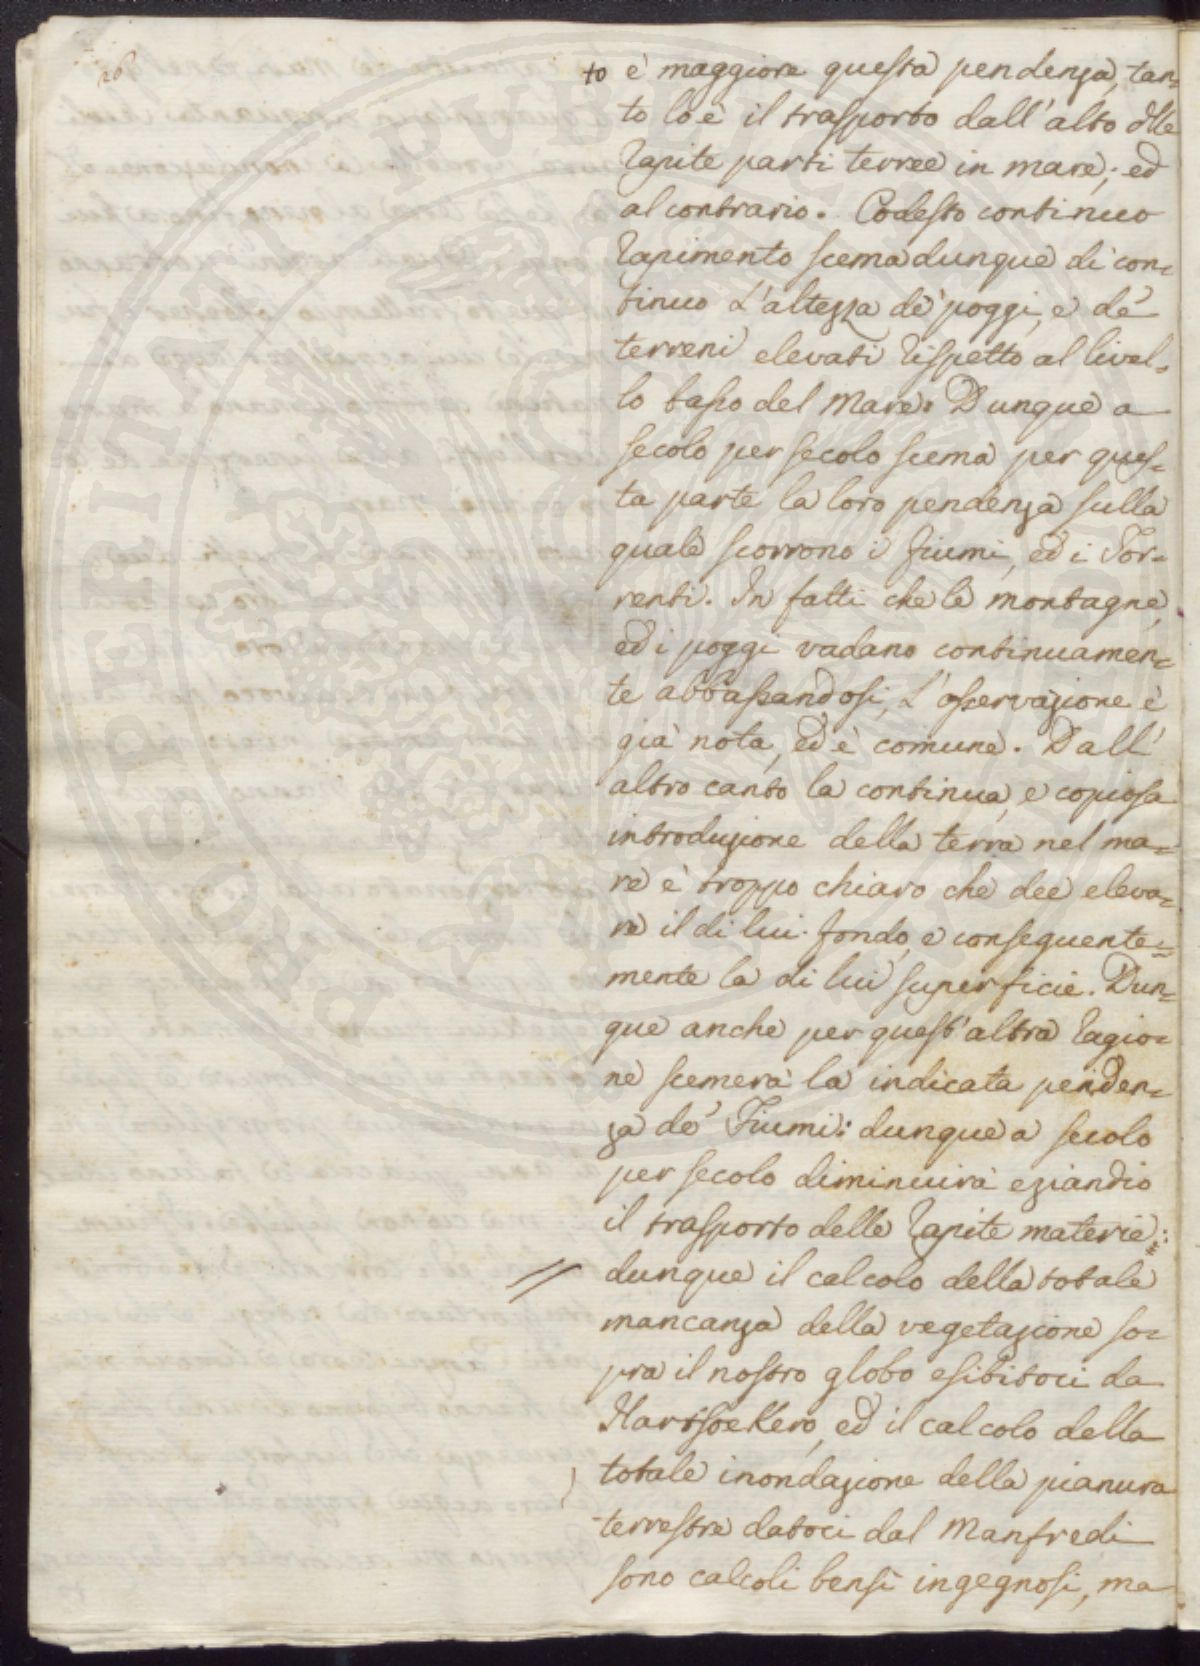 26
to è maggiore questa pendenza, tan-
to lo è il trasporto dall'alto dlle
rapite parti terree in mare; ed
al contrario. Codesto continuo
rapimento scema dunque di con-
tinuo l'altezza de' poggi, e de'
terreni elevati rispetto al livel-
lo basso del Mare. Dunque a
secolo per secolo scema per ques-
ta parte la loro pendenza sulla
quale scorrono i fiumi, ed i Tor-
renti. In fatti che le montagne,
ed i poggi vadano continuamen-
te abbassandosi, l'osservazione è
già nota, ed è comune. Dall'
altro canto la continua, e copiosa
introduzione della terra nel ma-
re è troppo chiaro che dee eleva-
re il di lui fondo, e conseguente-
mente la di lui superficie. Dun-
que anche per quest'altra ragio-
ne scemerà la indicata penden-
za de' Fiumi: dunque a secolo
per secolo diminuirà eziandio
il trasporto delle rapite materie:
// dunque il calcolo della totale
mancanza della vegetazione so-
pra il nostro globo esibitoci da
Hartsoekero, ed il calcolo della
totale inondazione della pianura
terrestre datoci dal Manfredi
sono calcoli bensì ingegnosi, ma
PROSPERITATI PUBLICAE